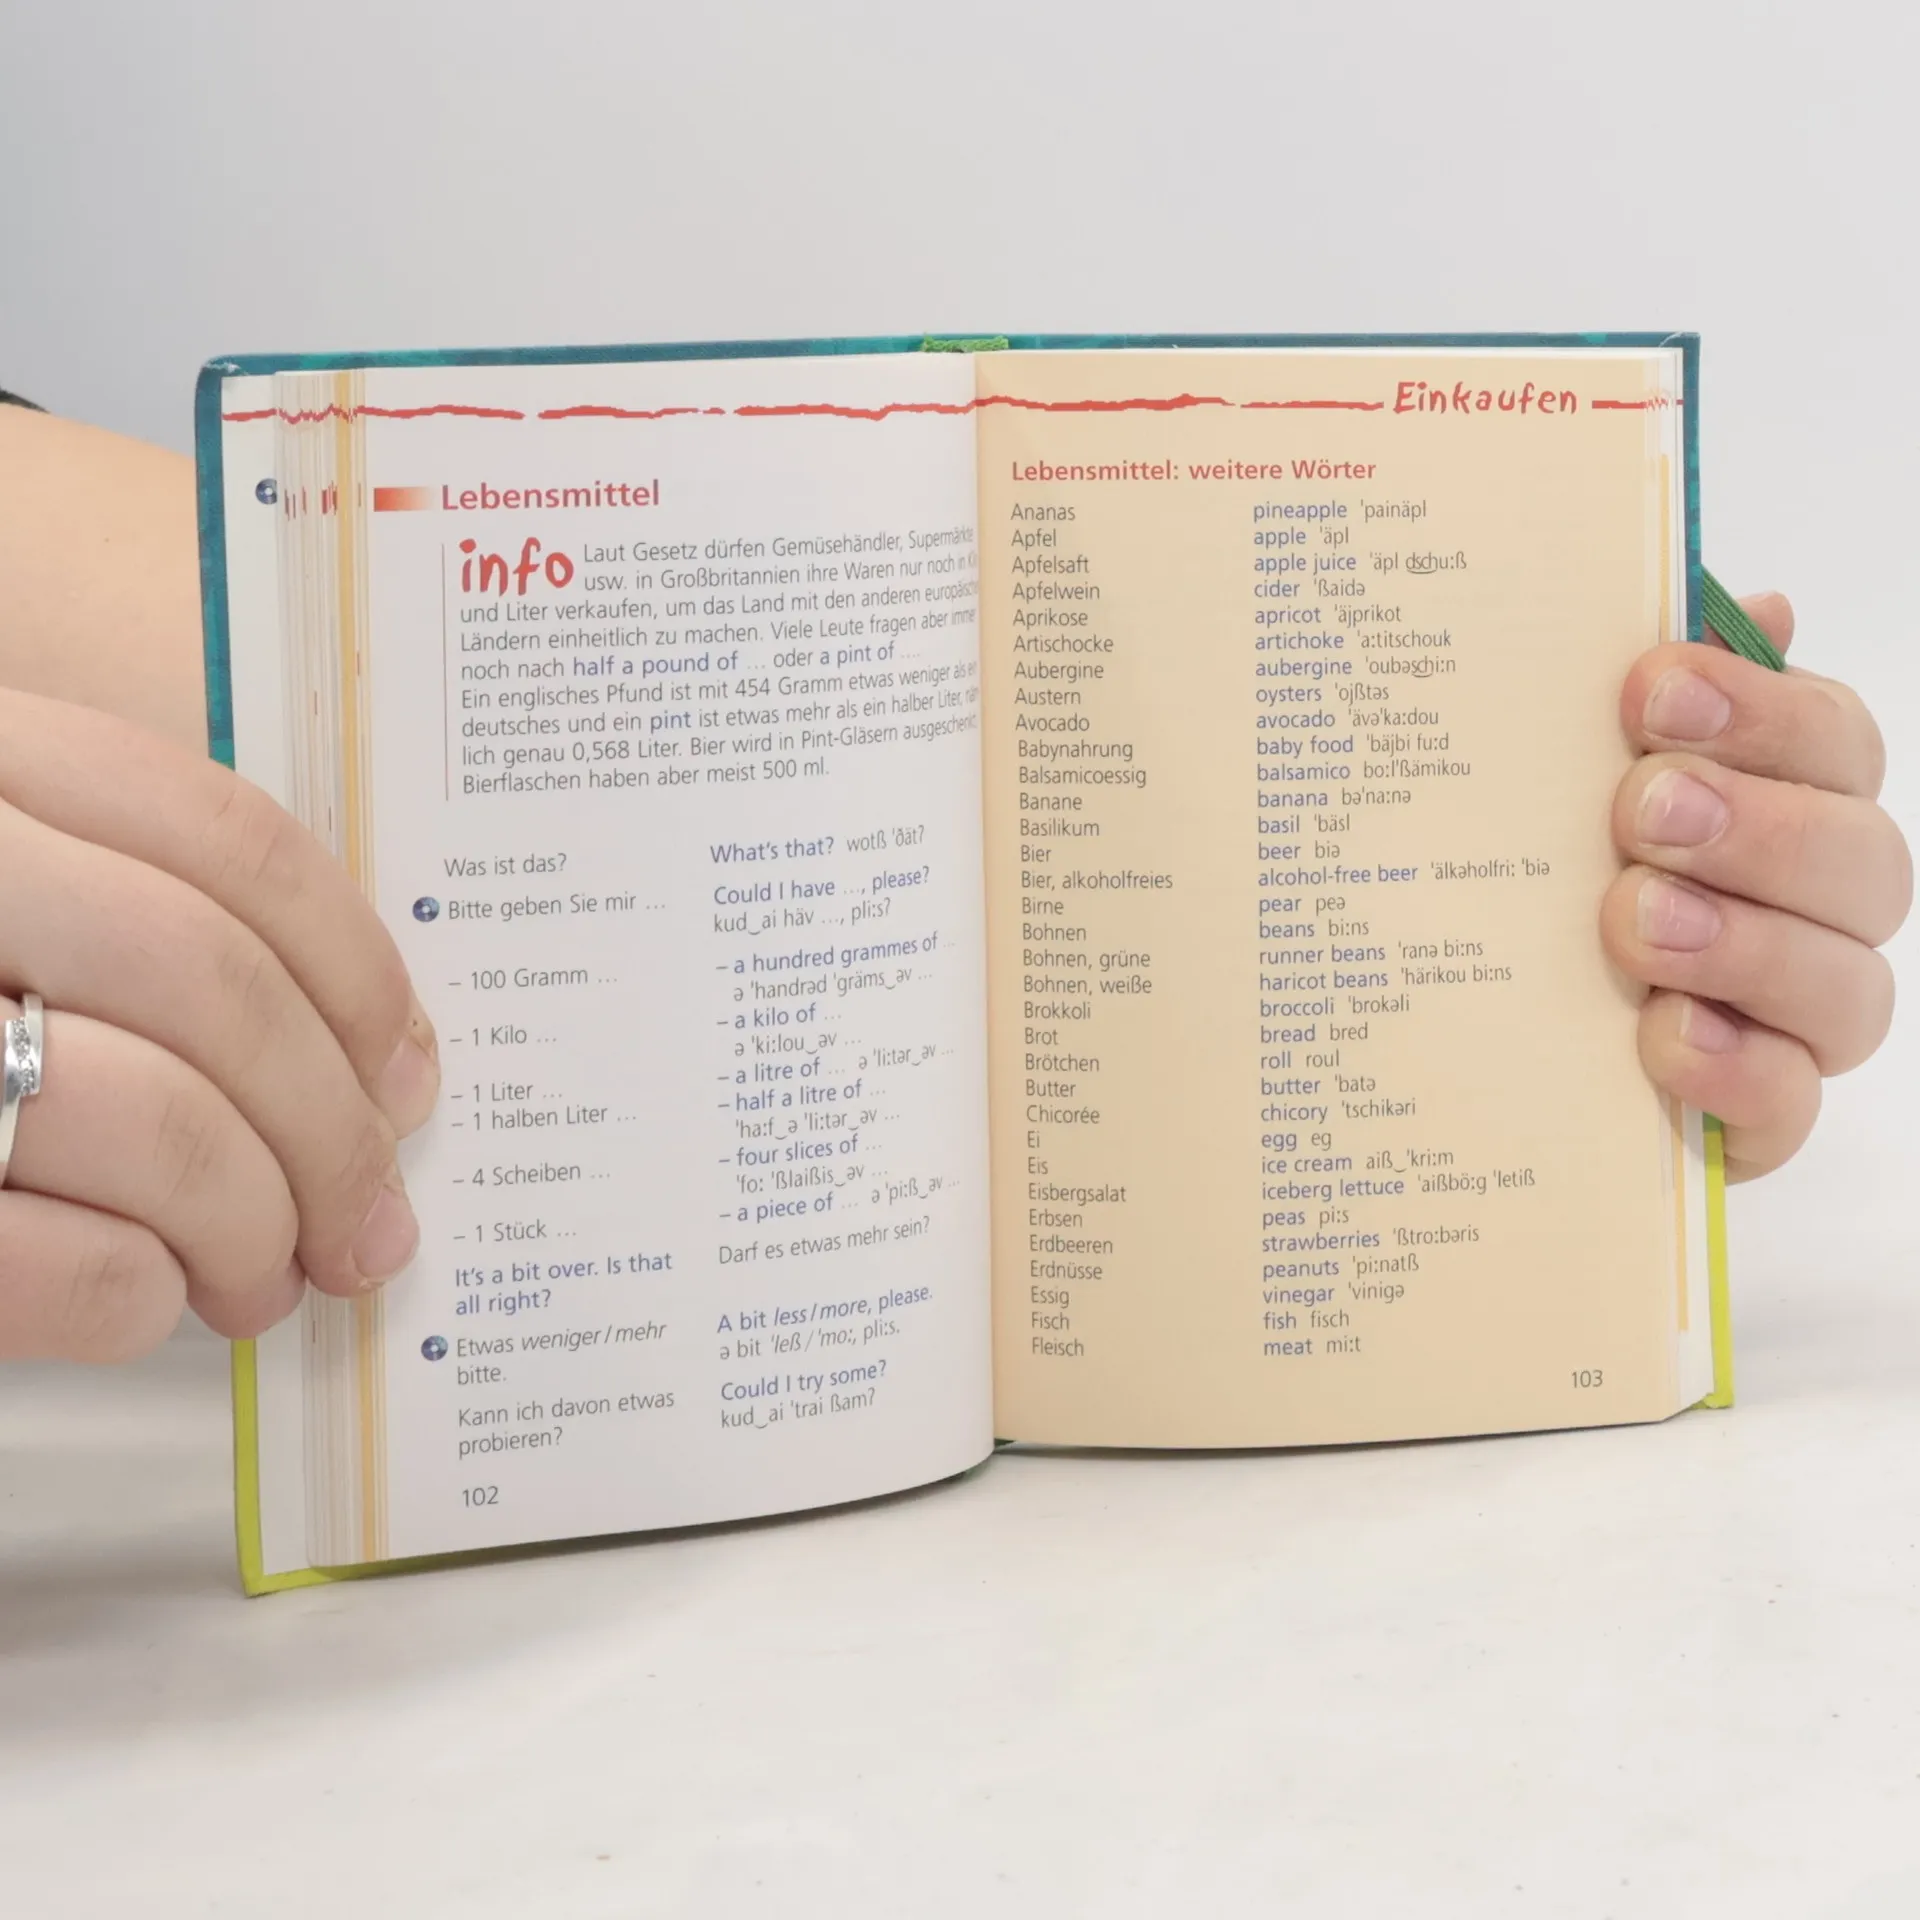 Lebensmittel
info Laut Gesetz dürfen Gemüsehändler, Supermärkte
usw. in Großbritannien ihre Waren nur noch in
und Liter verkaufen, um das Land mit den anderen
Ländern einheitlich zu machen. Viele Leute fragen aber
noch nach half a pound of ... oder a pint of ....
Ein englisches Pfund ist mit 454 Gramm etwas weniger als
deutsches und ein pint ist etwas mehr als ein halber Liter,
lich genau 0,568 Liter. Bier wird in Pint-Gläsern ausgeschenkt
Bierflaschen haben aber meist 500 ml.
Was ist das?
What's that? wotß 'ðät?
Bitte geben Sie mir ...
Could I have ..., please?
kud‿ai häv ..., pli:s?
– 100 Gramm ...
– a hundred grammes of ...
ə 'handrəd 'gräms‿əv ...
– 1 Kilo ...
– a kilo of ...
ə 'ki:lou‿əv ...
– 1 Liter ...
– a litre of ... ə 'li:tər‿əv ...
– 1 halben Liter ...
– half a litre of ...
'ha:f‿ə 'li:tər‿əv ...
– 4 Scheiben ...
– four slices of ...
'fo: 'ßlaißis‿əv ...
– 1 Stück ...
– a piece of ... ə 'pi:ß‿əv ...
It's a bit over. Is that
all right?
Darf es etwas mehr sein?
Etwas weniger / mehr
bitte.
A bit less / more, please.
ə bit 'leß / 'mo:, pli:s.
Kann ich davon etwas
probieren?
Could I try some?
kud‿ai 'trai ßam?
102
Einkaufen
Lebensmittel: weitere Wörter
Ananas pineapple 'painäpl
Apfel apple 'äpl
Apfelsaft apple juice 'äpl dschu:ß
Apfelwein cider 'ßaidə
Aprikose apricot 'äjprikot
Artischocke artichoke 'a:titschouk
Aubergine aubergine 'oubəschi:n
Austern oysters 'ojßtəs
Avocado avocado 'ävə'ka:dou
Babynahrung baby food 'bäjbi fu:d
Balsamicoessig balsamico bo:l'ßämikou
Banane banana bə'na:nə
Basilikum basil 'bäsl
Bier beer biə
Bier, alkoholfreies alcohol-free beer 'älkəholfri: 'biə
Birne pear peə
Bohnen beans bi:ns
Bohnen, grüne runner beans 'ranə bi:ns
Bohnen, weiße haricot beans 'härikou bi:ns
Brokkoli broccoli 'brokəli
Brot bread bred
Brötchen roll roul
Butter butter 'batə
Chicorée chicory 'tschikəri
Ei egg eg
Eis ice cream aiß‿'kri:m
Eisbergsalat iceberg lettuce 'aißbö:g 'letiß
Erbsen peas pi:s
Erdbeeren strawberries 'ßtro:bəris
Erdnüsse peanuts 'pi:natß
Essig vinegar 'vinigə
Fisch fish fisch
Fleisch meat mi:t
103